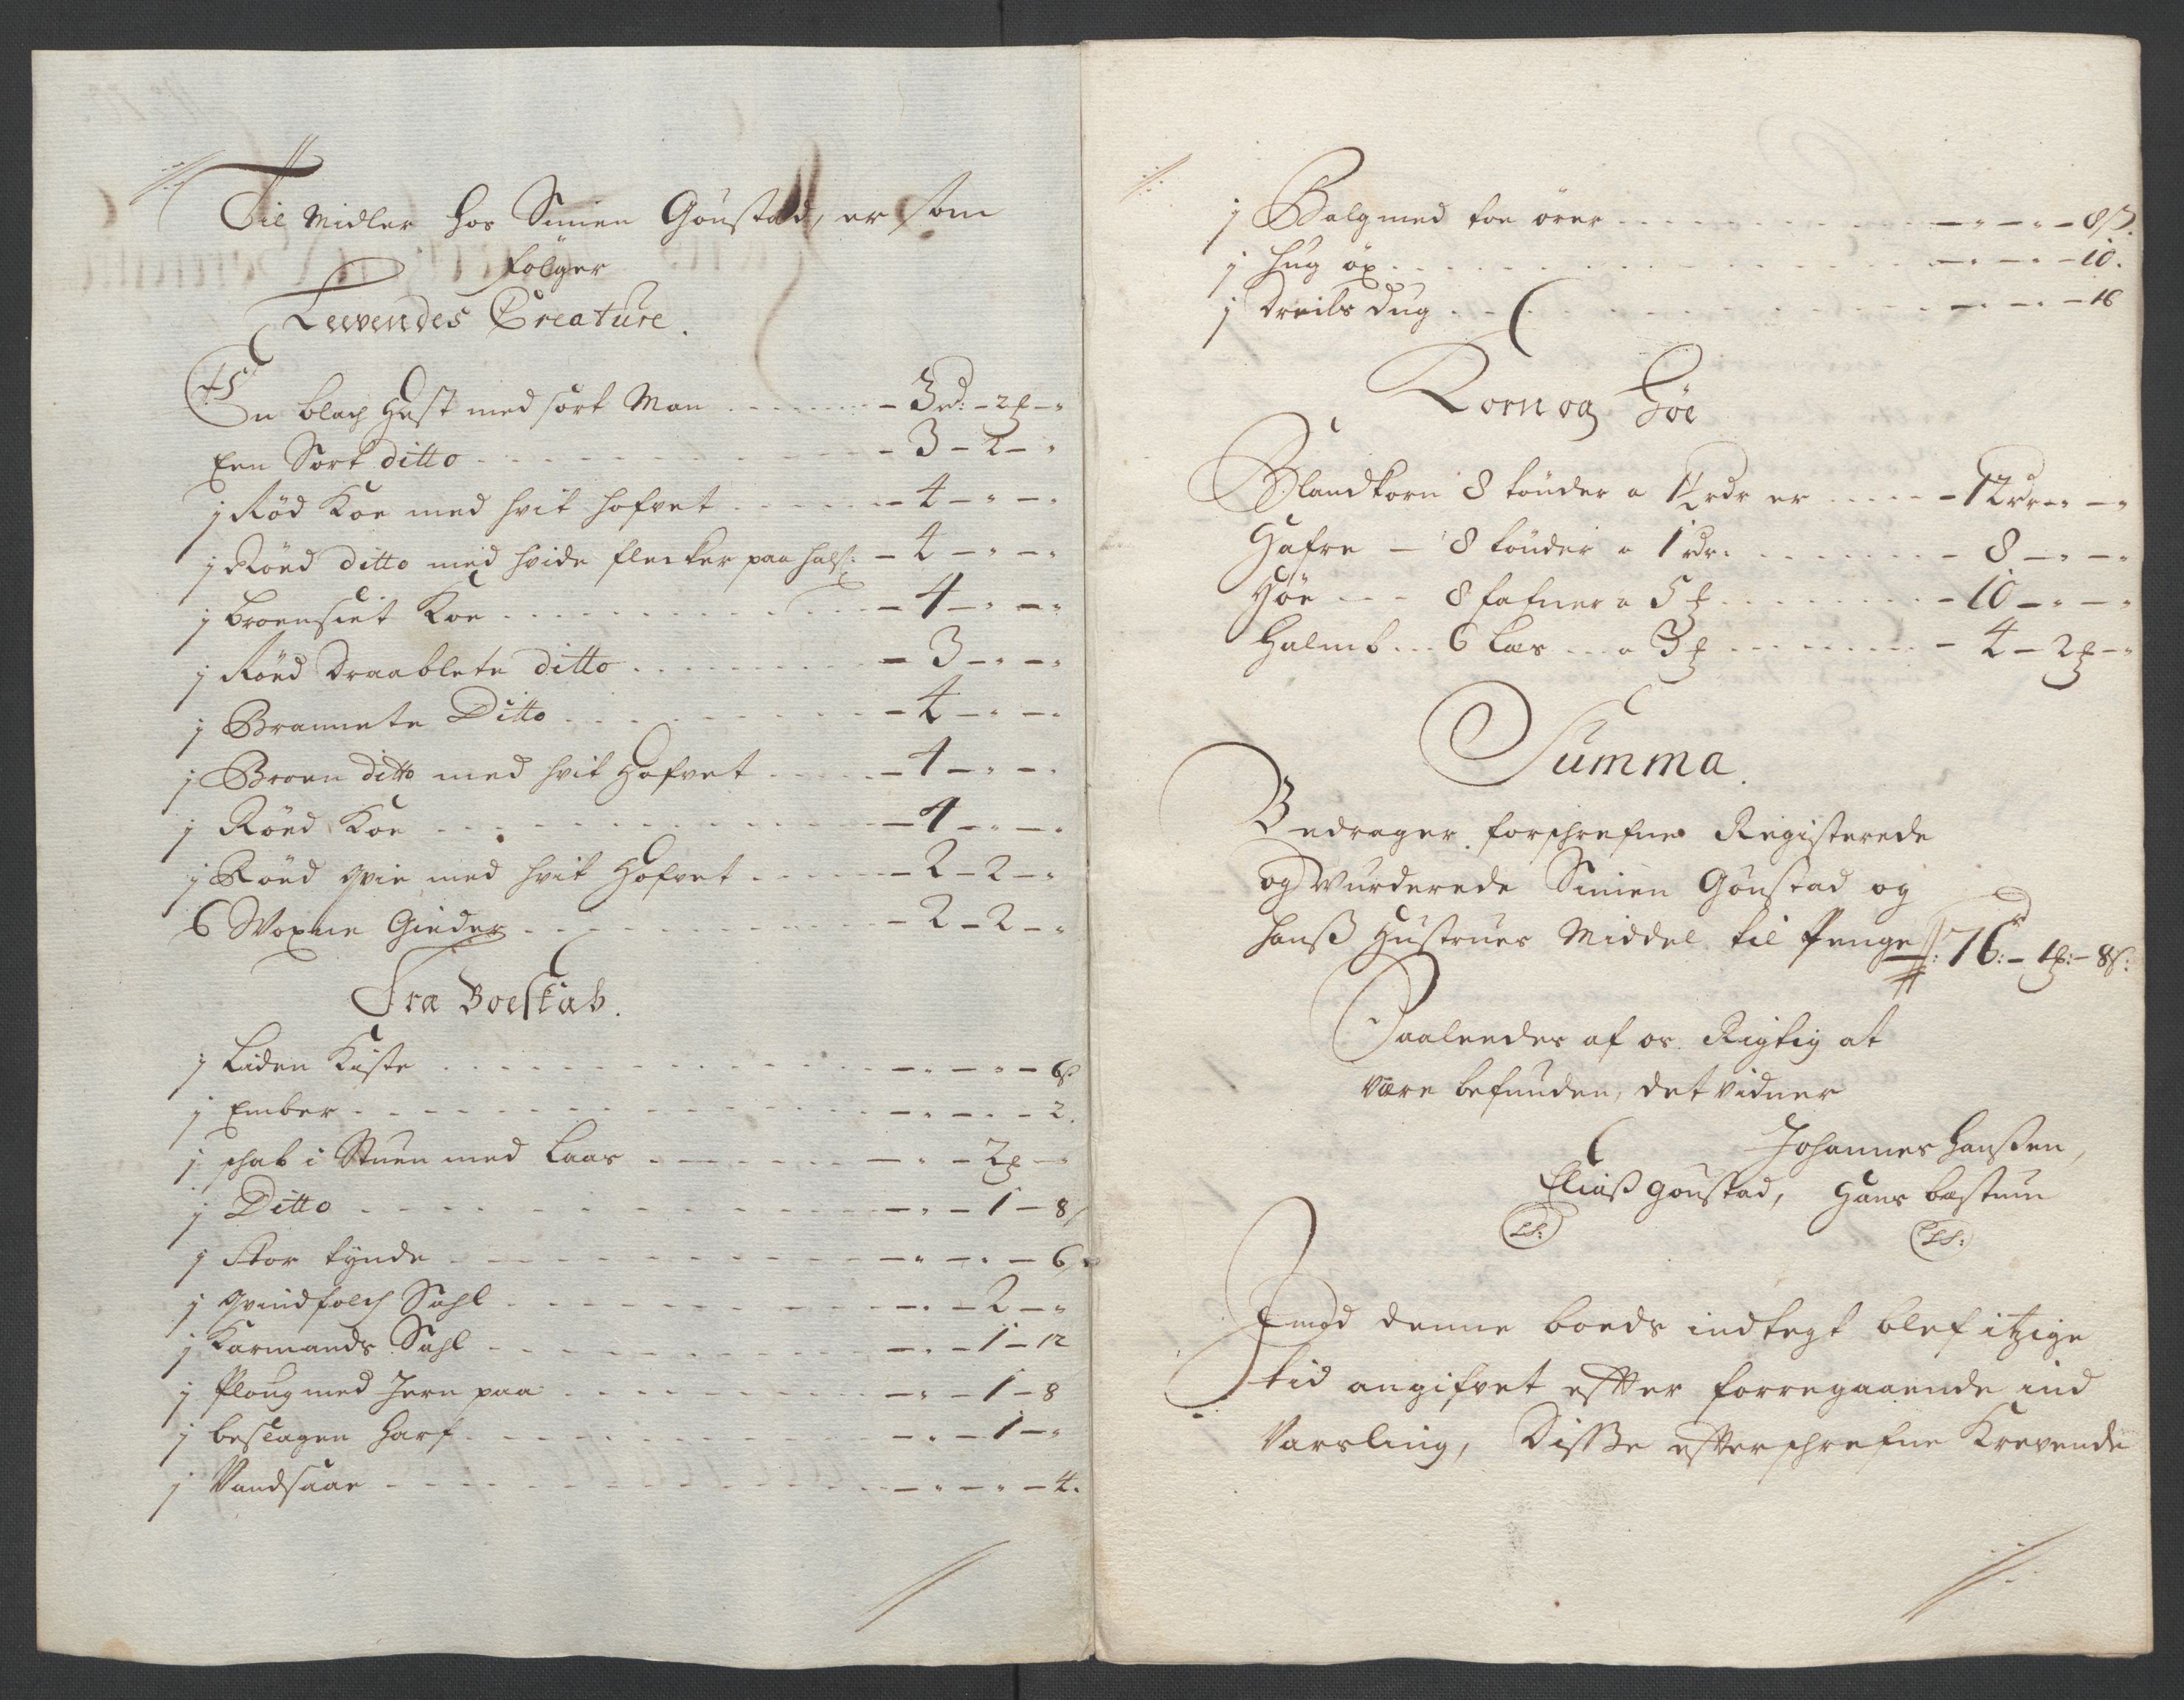 Til Midler hos Simen Gøustad, er som
følger
Levendes Creature.
En blach Hest med sort Man - 3 rd: - 2 ₰ - "
Een Sort ditto - 3 - 2 - "
j Rød Koe med hvit hofvet - 4 - " - "
j Røed ditto med hvide flecker paa hals: - 4 - " - "
j broensiet Koe - 4 - " - "
j Røed Draablete ditto - 3 - " - "
j Brannete Ditto - 4 - " - "
j Broen ditto med hvit Hofvet - 4 - " - "
j Røed Koe - 4 - " - "
j Røed qvie med hvit Hofvet - 2 - 2 - "
6 Woxne Gieder - 2 - 2 - "
Træ Boeskab.
j Liden Kiste - " - " - 6 ß
j Ember - " - " - 2.
j schab i Stuen med Laas - " - 2 ₰ - "
j Ditto - " - 1 - 8
j Stor tynde - " - " - 6
j qvindfolch Sahl - " - 2 - "
j Karmands Sahl - " - 1 - 12
j Ploug med Jern paa - " - 1 - 8
j beslagen Harf - " - 1 - "
j Vandsaae - " - " - 4.
j Balg med toe ører - " - " - 8 ß.
j hug øx - " - " - 10.
j Dreils Dug - " - " - 16
Korn og Høe
Blandkorn 8 tønder a 1½ rdr er - 12 rdr - " - "
Hafre - 8 tønder a 1 rdr. - 8 - " - "
Høe - 8 fafner a 5 ₰ - 10 - " - "
Halmb - 6 Læs - a 3 ₰ - 4 - 2 ₰ - "
Summa.
Bedrager forschrefne Registerede
og Vurderede Simen Gøustad og
hanß Hustrues Middel til Penge 76: - 1 ₰: - 8 ß:
Saaleedes af os Rigtig at
være befunden, det vidner
Johannes Hanßen,
Eliaß goustad, Hans bæstum
LS: LS:
Imod denne boeds indtegt blef itzige
tid angifvet efter forregaaende ind
Varsling, Disße efterschrefne Krevende